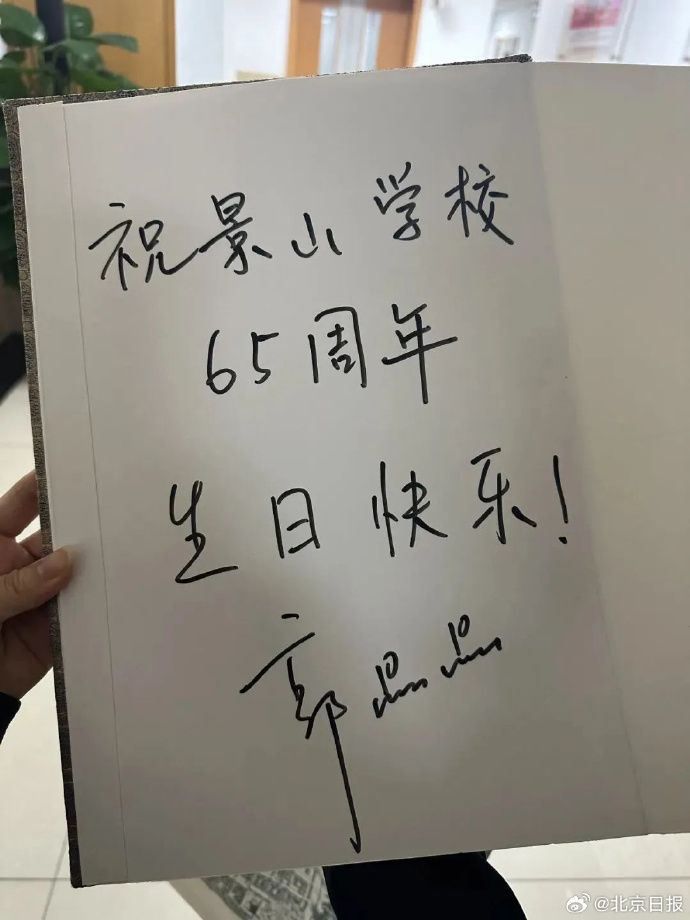 祝景山学校
65周年
生日快乐!
郭晶晶
@北京日报